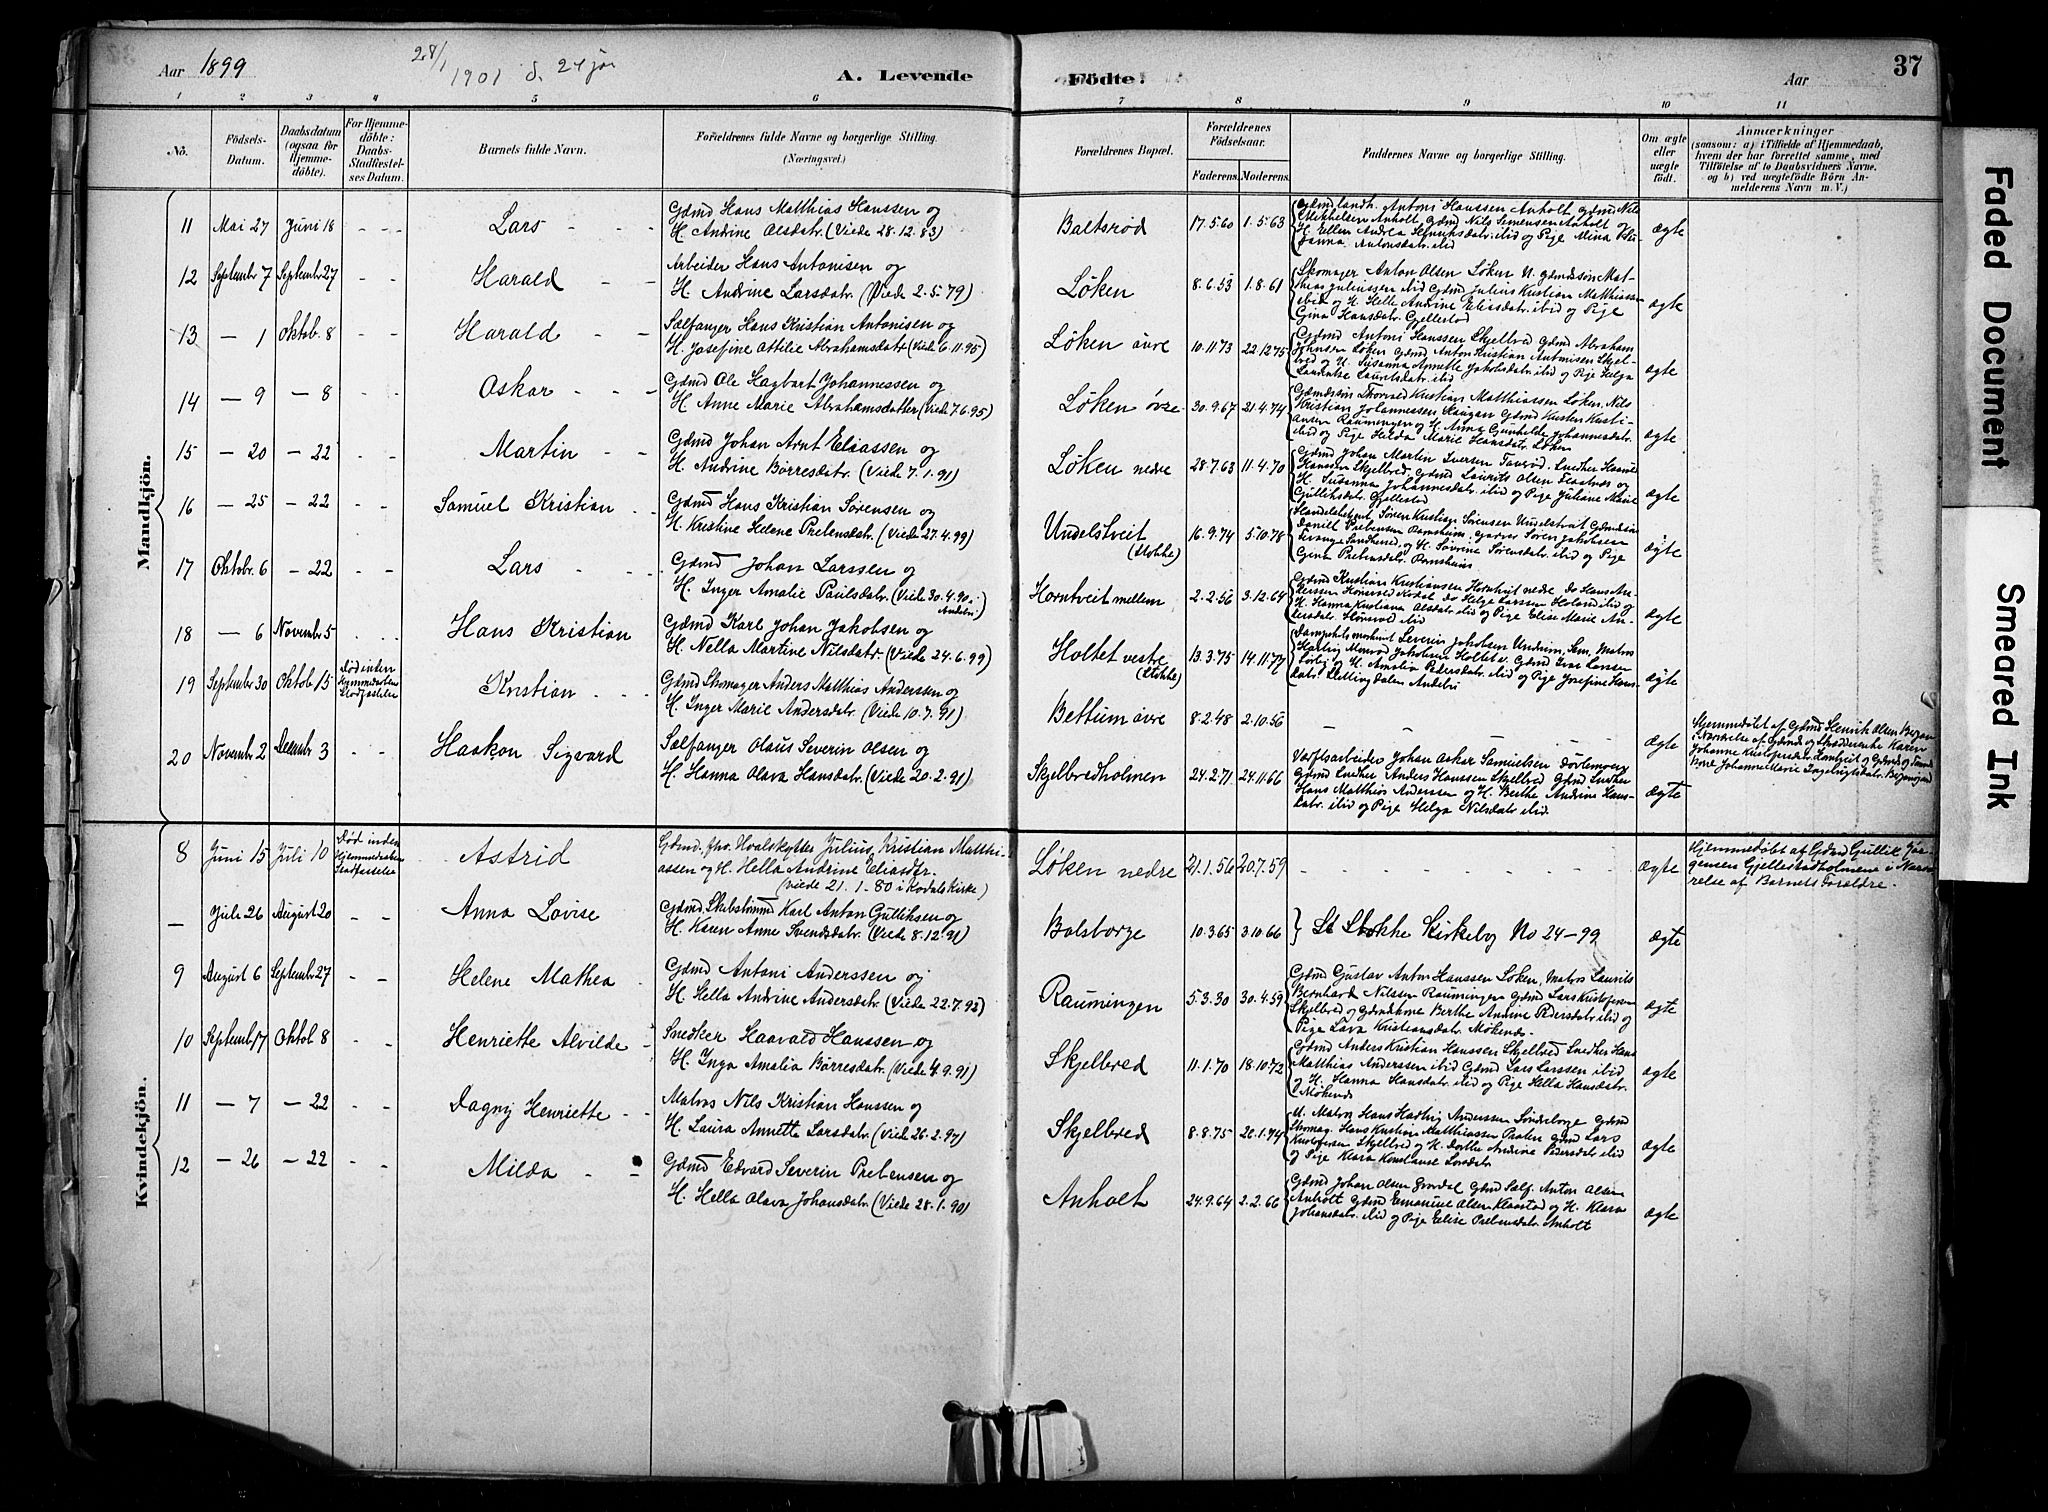 Aar 1899
28/1 1901 d. 24 jn
A. Levende
Födte.
Aar
37
1 2 3 4 5 6 7 8 9 10 11
No.
Födsels-Datum.
Daabsdatum (ogsaa for Hjemme-döbte).
For Hjemme-döbte: Daabs-Stadfæstel-ses Datum.
Barnets fulde Navn.
Forældrenes fulde Navne og borgerlige Stilling.
(Næringsvei.)
Forældrenes Bopæl.
Forældrenes Födselsaar.
Faderens. Moderens.
Faddernes Navne og borgerlige Stilling.
Om ægte eller uægte födt.
Anmærkninger
(saasom: a) i Tilfælde af Hjemmedaab,
hvem der har forrettet samme, med
Tilföielse af to Daabsvidners Navne.
og b) ved uægtefödte Börn An-
melderens Navn m. V.)
Mandkjön.
11 Mai 27 Juni 18 - - - Lars - - - Gdmd Hans Matthias Hanssen og
H. Andrine Olsdatr. (Viede 28.12.83) Baltsrød 17.5.60 1.5.63 ægte
Gdmd landh. Antoni Hanssen Anholt Gdmd Nils
Mikkelsen Anholt Gdmd Nils Simensen Anholt og
H. Ellen Andrea Henriksdatr. ibid og Pige Mina
Antonsdatr. ibid
12 Septembr 7 Septembr 27 - - Harald - - Arbeider Hans Antonisen og
H. Andrine Larsdatr. (Viede 2.5.79) Løken 8.6.53 1.8.61 ægte
Skomager Anton Olsen Løken N. Gdmdssøn Mat-
thias Juliussen ibid Gdmd Julius Kristian Matthiassen
ibid og H. Helle Andrine Eliasdatr. ibid og Pige
Gina Hansdatr. Gjellestad
13 - 1 Oktob. 8 - - Harald - - Sælfanger Hans Kristian Antonisen og
H. Josefine Ottilie Abrahamsdatr (Viede 6.11.95) Løken övre 10.11.73 22.12.75 ægte
Gdmd Antoni Hanssen Skjelbred Gdmd Abraham
Johnsen Løken Gdmd Anton Kristian Antonisen Skjel-
bred og H. Susanna Annette Jakobsdatr. ibid og Pige Helga
Laurentze Lauritsdatr. ibid
14 - 9 - 8 - - Oskar - - - Gdmd Ole Hagbart Johannessen og
H Anne Marie Abrahamsdatter (Viede 7.6.95) Løken øvre 30.9.67 21.4.74 ægte
Gdmdssøn Thorvald Kristian Matthiassen Løken, Nils
Kristian Johannessen Haugan Gdmd Kristen Kristi-
ansen Raumingen og H. Anna Gunhilde Johannesdatr.
ibid og Pige Hilda Marie Hansdatr. Løken
15 - 20 - 22 - - Martin - - Gdmd Johan Arnt Eliassen og
H. Andrine Börresdatr. (Viede 7.1.91) Løken nedre 28.7.63 11.4.70 ægte
Gdmd Johan Martin Iversen Tangrød, Snedker Haavald
Hanssen Skjelbred, Gdmd Laurits Olsen og
H. Susanna Johannesdatr. ibid og Pige Juliane Marie
Gulliksdatr. Gjellestad
16 - 25 - 22 - - Samuel Kristian - - Gdmd Hans Kristian Sörensen og
H. Kristine Helene Prebensdatr. (Viede 27.4.99) Undelstveit
(Stokke) 16.9.74 5.10.78 ægte
Handelsbetjent Sören Kristian Sörensen Undelstveit Gdmdssøn
Daniel Prebensen Ramsheim, Garver Sören Jakobsen
Sandherred, og H. Sövrine Sörensdatr. ibid og Pige
Gina Prebensdatr. Ramsheim
17 Oktobr. 6 - 22 - - Lars - - - Gdmd Johan Larssen og
H. Inger Amalie Paulsdatr. (Viede 30.4.90 i
Andebu) Horntveit mellem 2.2.56 3.12.64 ægte
Gdmd Kristian Kristiansen Horntveit nedre do Hans An-
derssen Hönsvold Kodal do Helge Larssen Holand ibid og
H. Hanna Kristiana Olsdatr. ibid og Pige Elise Marie An-
dersdatr. Hönsvold ibid
18 - 6 Novembr 5 - - Hans Kristian Gdmd Karl Johan Jakobsen og
H. Nella Martine Nilsdatr. (Viede 24.6.99) Holtet vestre
(Stokke) 13.3.75 14.11.77 ægte
Dampskibsmaskinist Severin Jakobsen Undrim, Sem, Matros
Hartvig Jakobsen Holtet v. Gdmd Ivar Larsen
og H. Amalia Pedersdatr. ibid og Pige Josefine Hans-
datr. Andebu
19 Septembr 30 Oktob. 15 Död inden Hjemmedaabens Stadfæstelse Kristian - - - Gdmd Skomager Anders Matthias Anderssen og
H. Inger Marie Andersdatr. (Viede 10.7.91) Bettum övre 8.2.48 2.10.56 - - - - ægte
Hjemmedöbt af Gdmd Henrik Olsen
i Nærværelse af Gdmds og Karen
Johanne Kristofersdatr. og Gdmds
Johanne Marie Ingebrigtsdatr.
20 Novembr 2 Decembr 3 - - Haakon Sigvard Sælfanger Olaus Severin Olsen og
H. Hanna Olava Hansdatr. (Viede 20.2.91) Skjelbredholmen 24.2.71 24.11.66 ægte
Værftsarbeider Johan Oskar Samuelsen
Gdmd Snedker Anders Hanssen Skjelbred Gdmd Snedker
Hans Matthias Anderssen og H. Berthe Andrine Hans-
datr. ibid og Pige Helga Nilsdatr. ibid.
Kvindekjön.
8 Juni 15 Juli 10 Död inden Hjemmedaabens Stadfæstelse Astrid Gdmd. fhv. Hvalskytter Julius Kristian Matthi-
assen og H. Hella Andrine Eliasdtr.
(viede 21.1-80 i Kodals Kirke) Løken nedre 21.1.56 20.7.59 - - - - - - - ægte
Hjemmedöbt af Gdmd Gullik Jör-
gensen Gjellestadholmene i Nærvæ-
relse af Barnets Forældre.
- Juli 26 August 20 - - Anna Lovise Gdmd. Skibstömmd Karl Anton Gulliksen og
H. Karen Anne Svendsdatr. (Viede 8.12.91) Bolsborge 10.3.65 3.10.66 } Se Stokke Kirkebog No 24-99 ægte
9 August 6 Septembr 27 - - Helene Mathea - Gdmd Antoni Anderssen og
H. Hella Andrine Andersdatr. (Viede 22.7.92) Raumingen 5.3.30 30.4.59 ægte
Gdmd Gustav Anton Hanssen Løken, Matros Laurits
Bernhard Nilssen Raumingen Gdmd Lars Kristofersen
Skjelbred og Gdmdkone Berthe Andrine Pedersdatr. ibid og
Pige Lava Kristiansdatr. Mökende
10 Septemb 17 Oktob 8 - - Henriette Alvilde - Snedker Haavald Hanssen og
H. Inga Amalia Börresdatr. (Viede 4.9.91) Skjelbred 11.1.70 18.10.72 ægte
Gdmd Anders Kristian Hanssen Skjelbred Snedker Hans
Matthias Anderssen ibid Gdmd Lars Larssen ibid
og H. Hanna Hansdatr. ibid og Pige Hella Hansdatr.
Mökende
11 - 7 - 22 - - Dagny Henriette - - Matros Nils Kristian Hanssen og
H. Laura Annette Larsdatr. (Viede 26.2.97) Skjelbred 8.8.75 20.1.74 ægte
U. Matros Hans Hartvig Anderssen Sönderborge Gdmd
Skomag. Hans Kristian Matthiassen Praten Gdmd Lars
Kristofersen Skjelbred og H. Dorthe Andrine Pedersdatr. ibid
og Pige Klara Konstanse Larsdatr.
12 - 26 - 22 - - Milda - - Gdmd Edvard Severin Prebensen og
H. Hella Olava Johansdatr. (Viede 28.1.90) Anholt 24.9.64 2.2.66 ægte
Gdmd Johan Olsen Gdmd Sælf. Anton Olsen
Anholt Gdmd Emanuel Olsen Klaastad og H. Klara
Johansdatr. ibid og Pige Elise Prebensdatr. Anholt
Faded Document
Smeared Ink